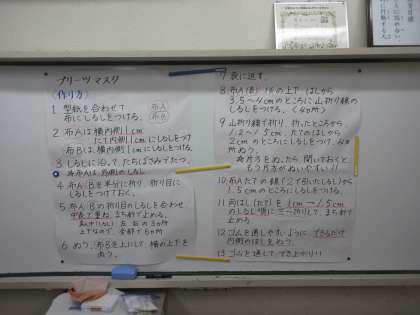 プリーツマスク
(作り方)
1 型紙を合わせて 布A
布にしるしをつける。 布B
2 布Aは横内側1cm
たて内側1cmにしるしをつけ
布Bは、横内側1cmにしるしをつける。
3 しるしに沿って、たちばさみでたつ。
4 布A、Bを半分に折り、折り目に
しるしをつけておく。
5 布A、Bの折り目のしるしを合わせ
中表で重ね、まち針で止める。
左右の3ヵ所
上下なので、合計で6ヵ所
6 ぬう。布Bを上にして、横の上下を
ぬう。
7 表に返す。
8 布A(表)の上下はしから
3.5〜4cmのところに山折り線の
しるしをつける。(4ヵ所)
9 山折り線で折り、折ったところから
1.2〜1.5cm、たてのはしから
2cmのところにしるしをつける。
ぬう。
片方をぬったら、開いておくと
もう片方がぬいやすい!!
10 布Aたての線
1.5cmのところにしるしをつける。
11 両はし(たて)を1cm→1.5cm
のしるし順に三つ折りして、まち針で
止める。
12 ゴムを通しやすいようにできるだけ
内側のはしをぬう。
13 ゴムを通して、でき上がり!!